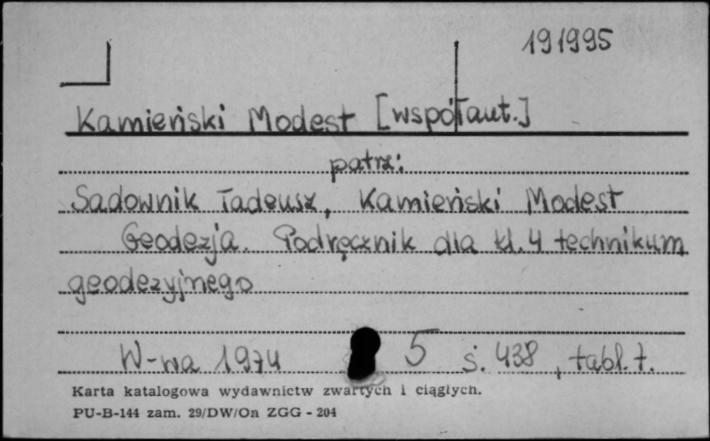 191995
Kamieński Modest [współaut.]
patrz:
Sadownik Tadeusz, Kamieński Modest
Geodezja. Podręcznik dla kl. 4 technikum
geodezyjnego
W-wa 1974 5 s. 438, tabl. 7.
Karta katalogowa wydawnictw zwartych i ciągłych.
PU-B-144 zam. 29/DW/On ZGG - 204